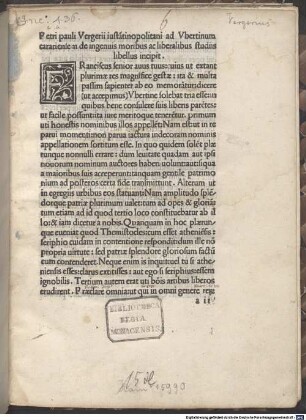 Inc. 126.
6
Vergerius
Petri pauli Vergerii iustinopolitani ad Ubertinum
carariensē de ingenuis moribus ac liberalibus studiis
libellus incipit.
FRanciscus senior auus tuus: cuius ut extant
plurimæ res magnifice gestæ: ita & multa
passim sapienter ab eo memorātur: dicere
(ut accepimus) Ubertine solebat tria esse: in
quibus bene consulere suis liberis parētes:
ut facile possunt: ita iure meritoque tenerētur. primum
uti honestis nominibus illos appellēt: Nam est
parui momenti: non parua iactura indecoram nominis
appellationem sortitum esse. In quo quidem solēt plæ
runque nonnulli errare: dum leuitate quadam aut ipsi
nouorum nominum auctores haberi uolunt: aut siqua
a maioribus suis acceperunt: tanquam gentile patrimo
nium ad posteros certa fide transmittunt. Alterum ut
in egregiis urbibus eos statuant: Nam amplitudo splē
dorque patriæ plurimum ualet: tum ad opes & gloriā:
tum etiam ad id quod tertio loco constituebatur ab il
lo: & iam dicetur a nobis. Quanquam in hoc plærun
que eueniat quod Themistocles: cum esset atheniēsis:
seriphio cuidam in contentione respondit: dum ille nō
propria uirtute: sed patriæ splendore gloriosum factū
eum contenderet. Neque enim is inquit: uel tu si athe
niensis esses: clarus extitisses: aut ego si seriphius: essem
ignobilis. Tertium autem erat uti bōis artibus liberos
erudirent. Præclare omnia: ut qui in omni genere rege
a ii
BIBLIOTHECA
REGIA
MONACENSIS.